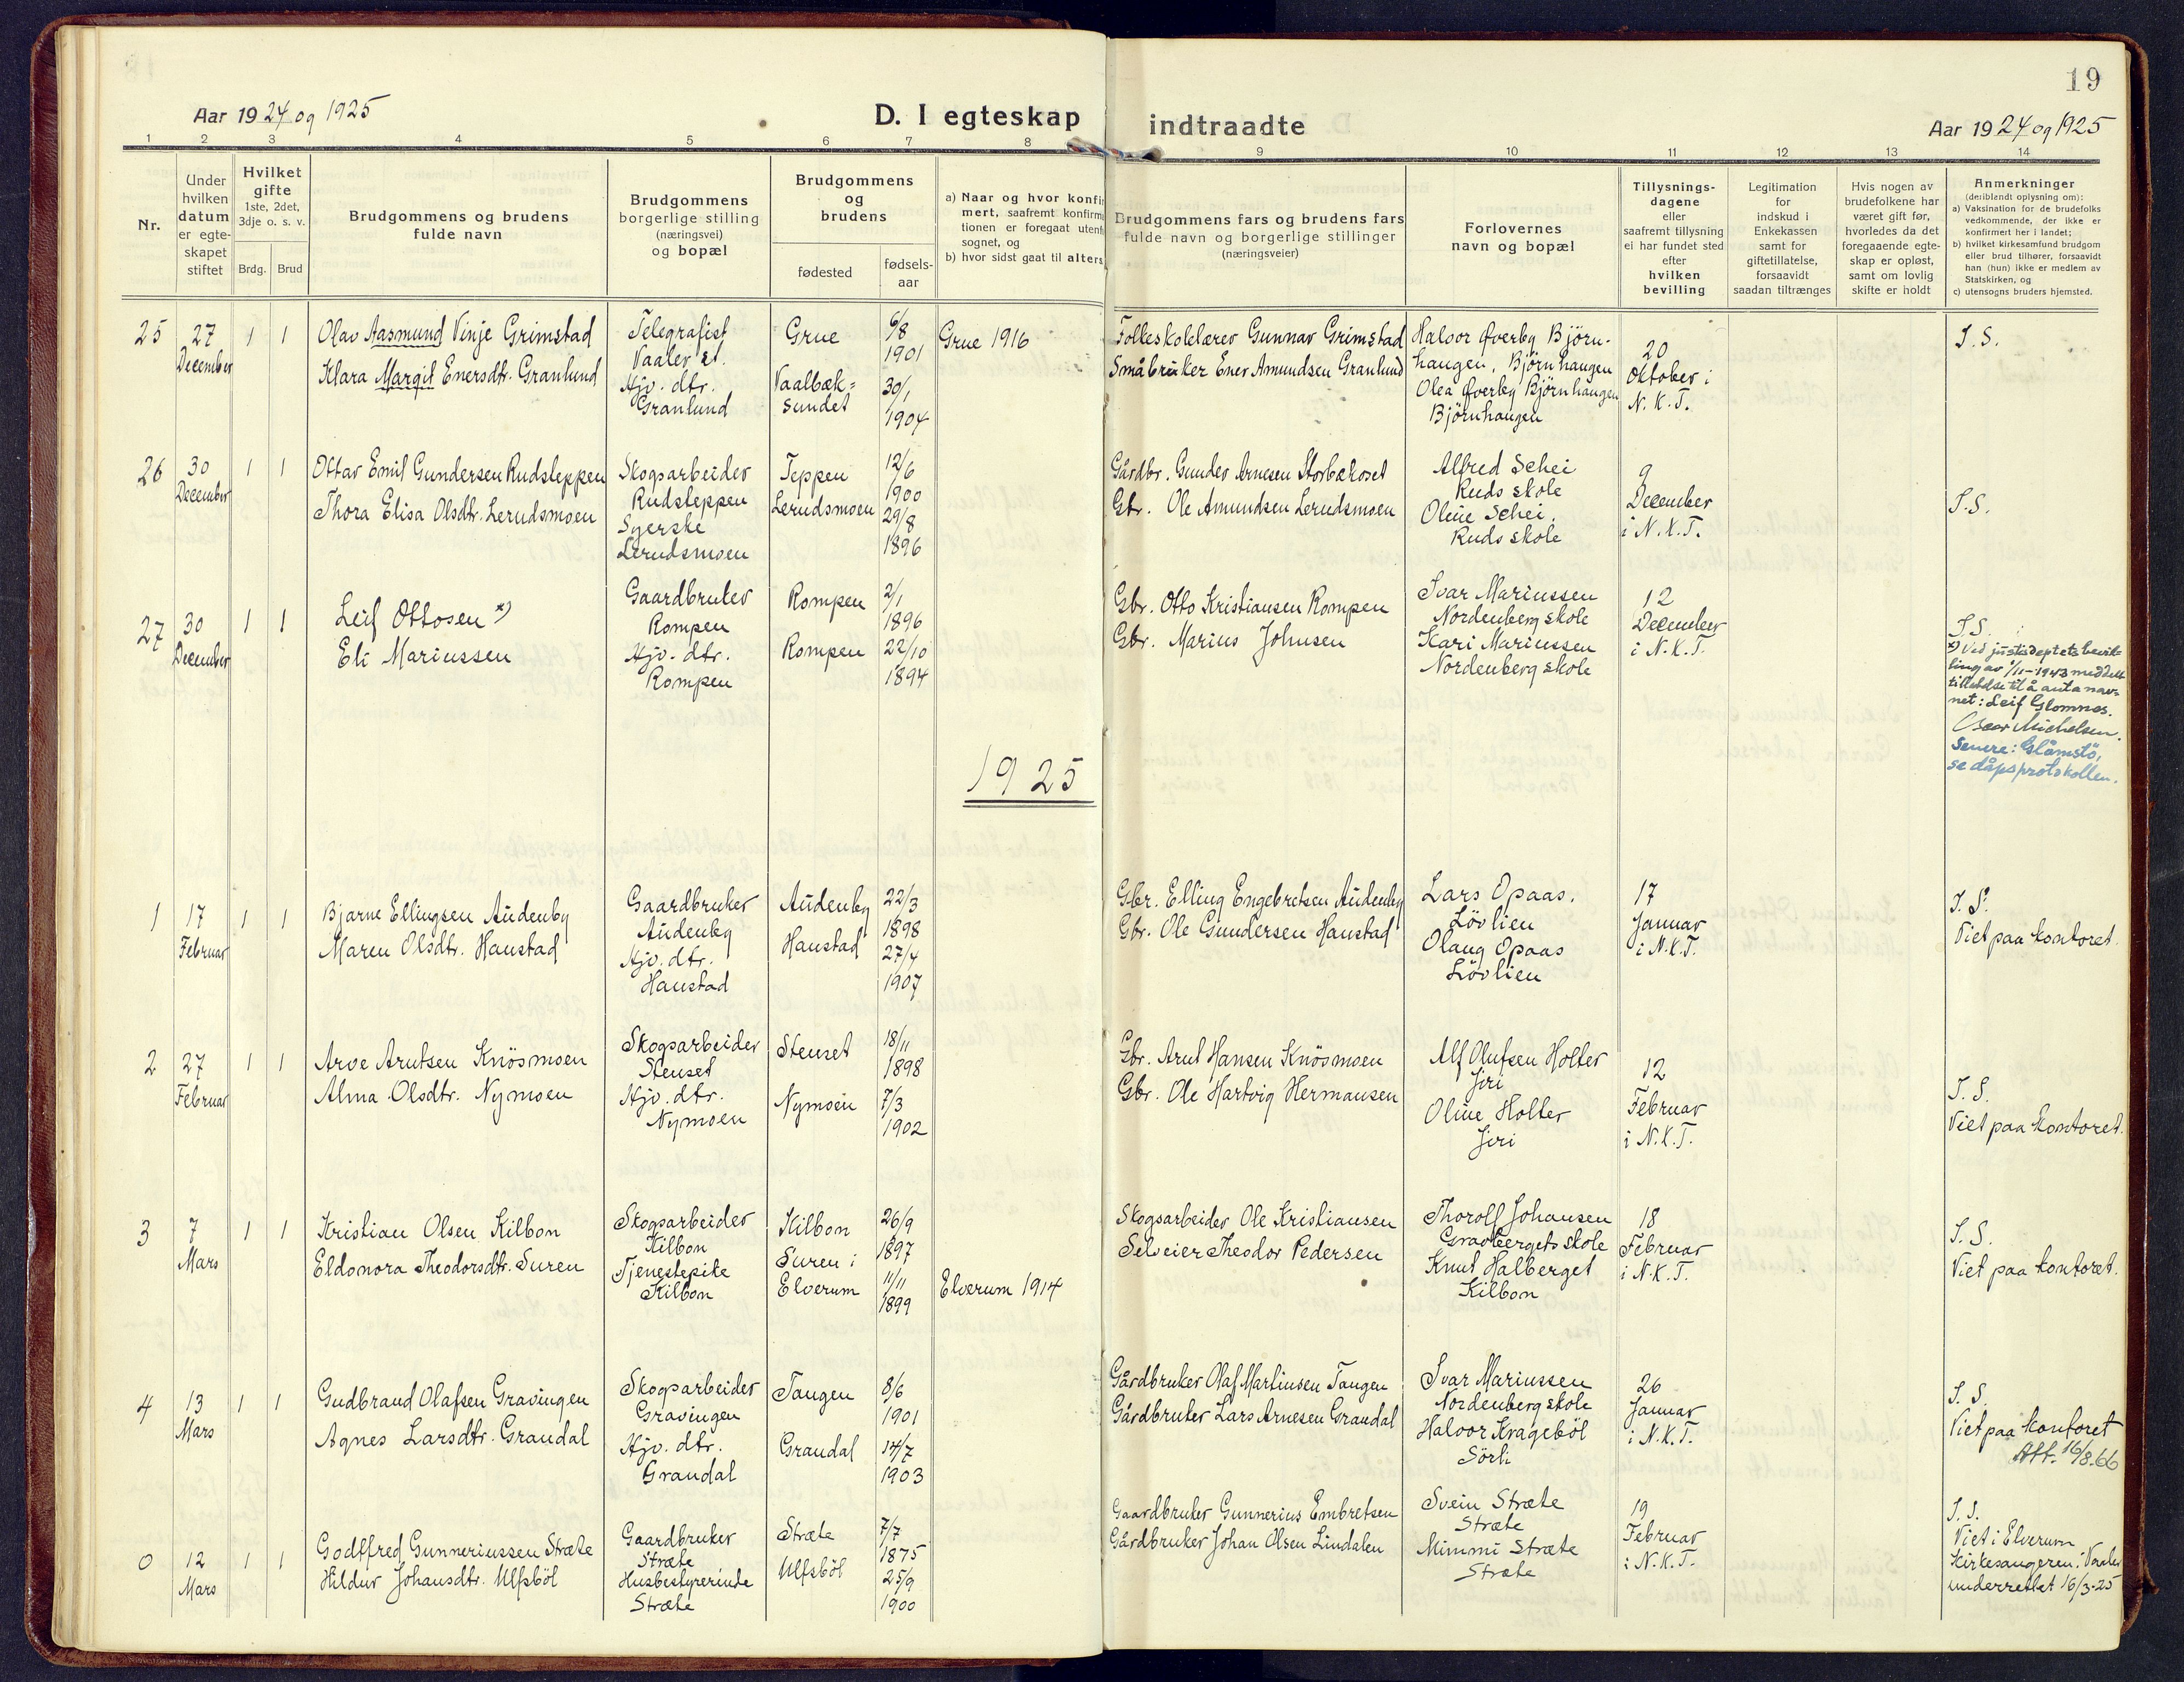 19
Aar 1924 og 1925
D. I egteskap indtraadte
Aar 1924 og 1925
1 2 3 4 5 6 7 8 9 10 11 12 13 14
Nr.
Under hvilken datum er egte- skapet stiftet
Hvilket gifte 1ste, 2det, 3dje o. s. v.
Brdg. Brud
Brudgommens og brudens fulde navn
Brudgommens borgerlige stilling (næringsvei) og bopæl
Brudgommens og brudens
fødested
fødsels- aar
a) Naar og hvor konfir
mert, saafremt konfirma
tionen er foregaat utenf
sognet, og
b) hvor sidst gaat til alters
Brudgommens fars og brudens fars
fulde navn og borgerlige stillinger
(næringsveier)
Forlovernes
navn og bopæl
Tillysnings-
dagene
eller
saafremt tillysning
ei har fundet sted
efter
hvilken
bevilling
Legitimation
for
indskud i
Enkekassen
samt for
giftetillatelse,
forsaavidt
saadan tiltrænges
Hvis nogen av
brudefolkene har
været gift før,
hvorledes da det
foregaaende egte-
skap er opløst,
samt om lovlig
skifte er holdt
Anmerkninger
(deriblandt oplysning om):
a) Vaksination for de brudefolks
vedkommende, der ikke er
konfirmert her i landet;
b) hvilket kirkesamfund brudgom
eller brud tilhører, forsaavidt
han (hun) ikke er medlem av
Statskirken, og
c) utensogns bruders hjemsted.
25
27 December
1 1
Olav Aasmund Vinje Grimstad
Klara Margit Enersdtr. Granlund
Telegrafist
Vaaler st.
Hjv. dtr.
Granlund
Grue
Vaalbæk=
sundet
6/8
1901
30/1
1904
Grue 1916
Folkeskolelærer Gunnar Grimstad
Småbruker Ener Amundsen Granlund
Halvor Øverby Björn-
haugen, Björnhaugen
Olea Øverby Björnhaugen
Björnhaugen
20
Oktober i
N. K. T.
I. S.
26
30 December
1 1
Ottar Emil Gundersen Rudsteppen
Thora Elisa Olsdtr. Lerudsmoen
Skogsarbeider
Rudsteppen
Syerske
Lerudsmoen
Teppen
Lerudsmoen
12/6
1900
29/8
1896
Gårdbr. Gunder Arnesen Storbækoset
Gbr. Ole Amundsen Lerudsmoen
Alfred Schei
Ruds skole
Oline Schei,
Ruds skole
9
December
i N. K. T.
I. S.
27
30 December
1 1
Leif Ottosen *)
Eli Mariussen
Gaardbruker
Rompen
Hjv. dtr.
Rompen
Rompen
Rompen
2/1
1896
22/10
1894
Gbr. Otto Kristiansen Rompen
Gbr. Marius Johnsen
Ivar Mariussen
Nordenberg skole
Kari Mariussen
Nordenberg skole
12
December
i N. K. T.
I. S.
*) Ved justisdeptets bevil-
ling av 1/11-1943 meddelt
tillatelse til å anta nav-
net: Leif Glomnes.
Oscar Michelsen.
Senere: Glåmstö,
se dåpsprotokollen.
1925
1
17 Februar
1 1
Bjarne Ellingsen Audenby
Maren Olsdtr. Haustad
Gaardbruker
Audenby
Hjv. dtr.
Haustad
Audenby
Haustad
22/3
1898
27/4
1907
Gbr. Elling Engebretsen Audenby
Gbr. Ole Gundersen Haustad
Lars Opaas,
Lövlien
Olaug Opaas
Lövlien
17
Januar
i N. K. T.
I. S.
Viet paa kontoret.
2
27 Februar
1 1
Arve Arntsen Knösmoen
Alma Olsdtr. Nymoen
Skogsarbeider
Stenset
Hjv. dtr.
Nymoen
Stenset
Nymoen
18/11
1898
7/3
1902
Gbr. Arnt Hansen Knösmoen
Gbr. Ole Hartvig Hermansen
Alf Olufsen Holter
Jiri
Oline Holter
Jiri
12
Februar
i N. K. T.
I. S.
Viet paa kontoret.
3
7 Mars
1 1
Kristian Olsen Kilbon
Eldonora Theodorsdtr. Suren
Skogsarbeider
Kilbon
Tjenestepike
Kilbon
Kilbon
Suren i
Elverum
26/9
1897
11/11
1899
Elverum 1914
Skogsarbeider Ole Kristiansen
Selveier Theodor Pedersen
Thorolf Johansen
Gravbergets skole
Knut Halberget
Kilbon
18
Februar
i N. K. T.
I. S.
Viet paa kontoret.
4
13 Mars
1 1
Gudbrand Olafsen Gravingen
Agnes Larsdtr. Grandal
Skogsarbeider
Gravingen
Hjv. dtr.
Grandal
Tangen
Grandal
8/6
1901
14/7
1903
Gårdbruker Olaf Martinsen Tangen
Gårdbruker Lars Arnesen Grandal
Ivar Mariussen
Nordenberg skole
Halvor Krageböl
Sörli
26
Januar
i N. K. T.
I. S.
Viet paa kontoret
Att. 16/8.66
0
12 Mars
1 1
Godtfred Gunneriussen Stræte
Hildur Johansdtr. Ulfsböl
Gaardbruker
Stræte
Husbestyrerinde
Stræte
Stræte
Ulfsböl
7/7
1875
25/9
1900
Gaardbruker Gunnerius Embretsen
Gårdbruker Johan Olsen Lindalen
Svein Stræte
Stræte
Mimmi Stræte
Stræte
19
Februar
i N. K. T.
I. S.
Viet i Elverum.
Kirkesangeren i Vaaler
underrettet 16/3-25